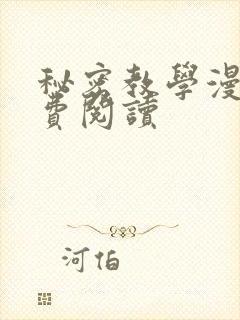 秘密教學漫
費閱讀
河伯